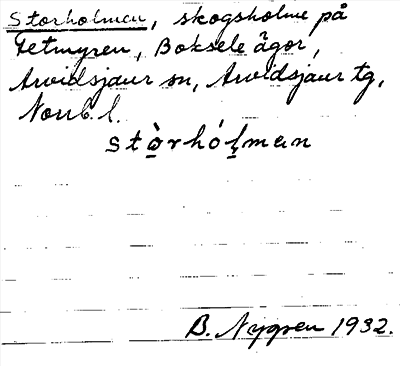 Storholmen, skogsholme på
Fetmyren, Boksele ägor,
Arvidsjaur sn, Arvidsjaur tg,
Norrb. l.
stò̱rhó̱l̥man
B. Nygren 1932.